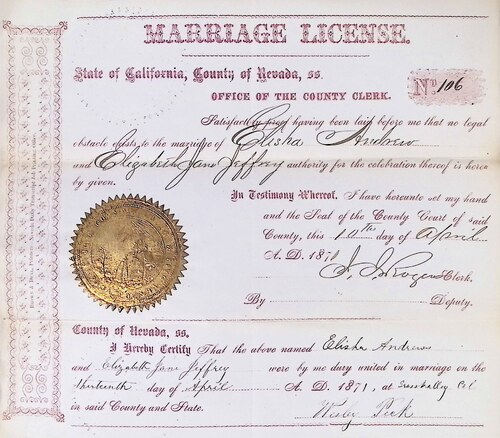 MARRIAGE LICENSE.
State of California, County of Nevada, ss.
No 106
OFFICE OF THE COUNTY CLERK.
Satisfactory proof having been laid before me that no legal
obstacle exists to the marriage of Elisha Andrew
and Elizabeth Jane Jeffry authority for the celebration thereof is here
by given.
In Testimony Whereof, I have hereunto set my hand
and the Seal of the County Court of said
County, this day of April
A. D. 1871
Rogers Clerk.
By Deputy.
County of Nevada, ss.
I Hereby Certify That the above named Elisha Andrew
and Elizabeth Jane Jeffrey were by me duly united in marriage on the
thirteenth day of April A. D. 1871, at Grass Valley Cal
in said County and State.
Peck